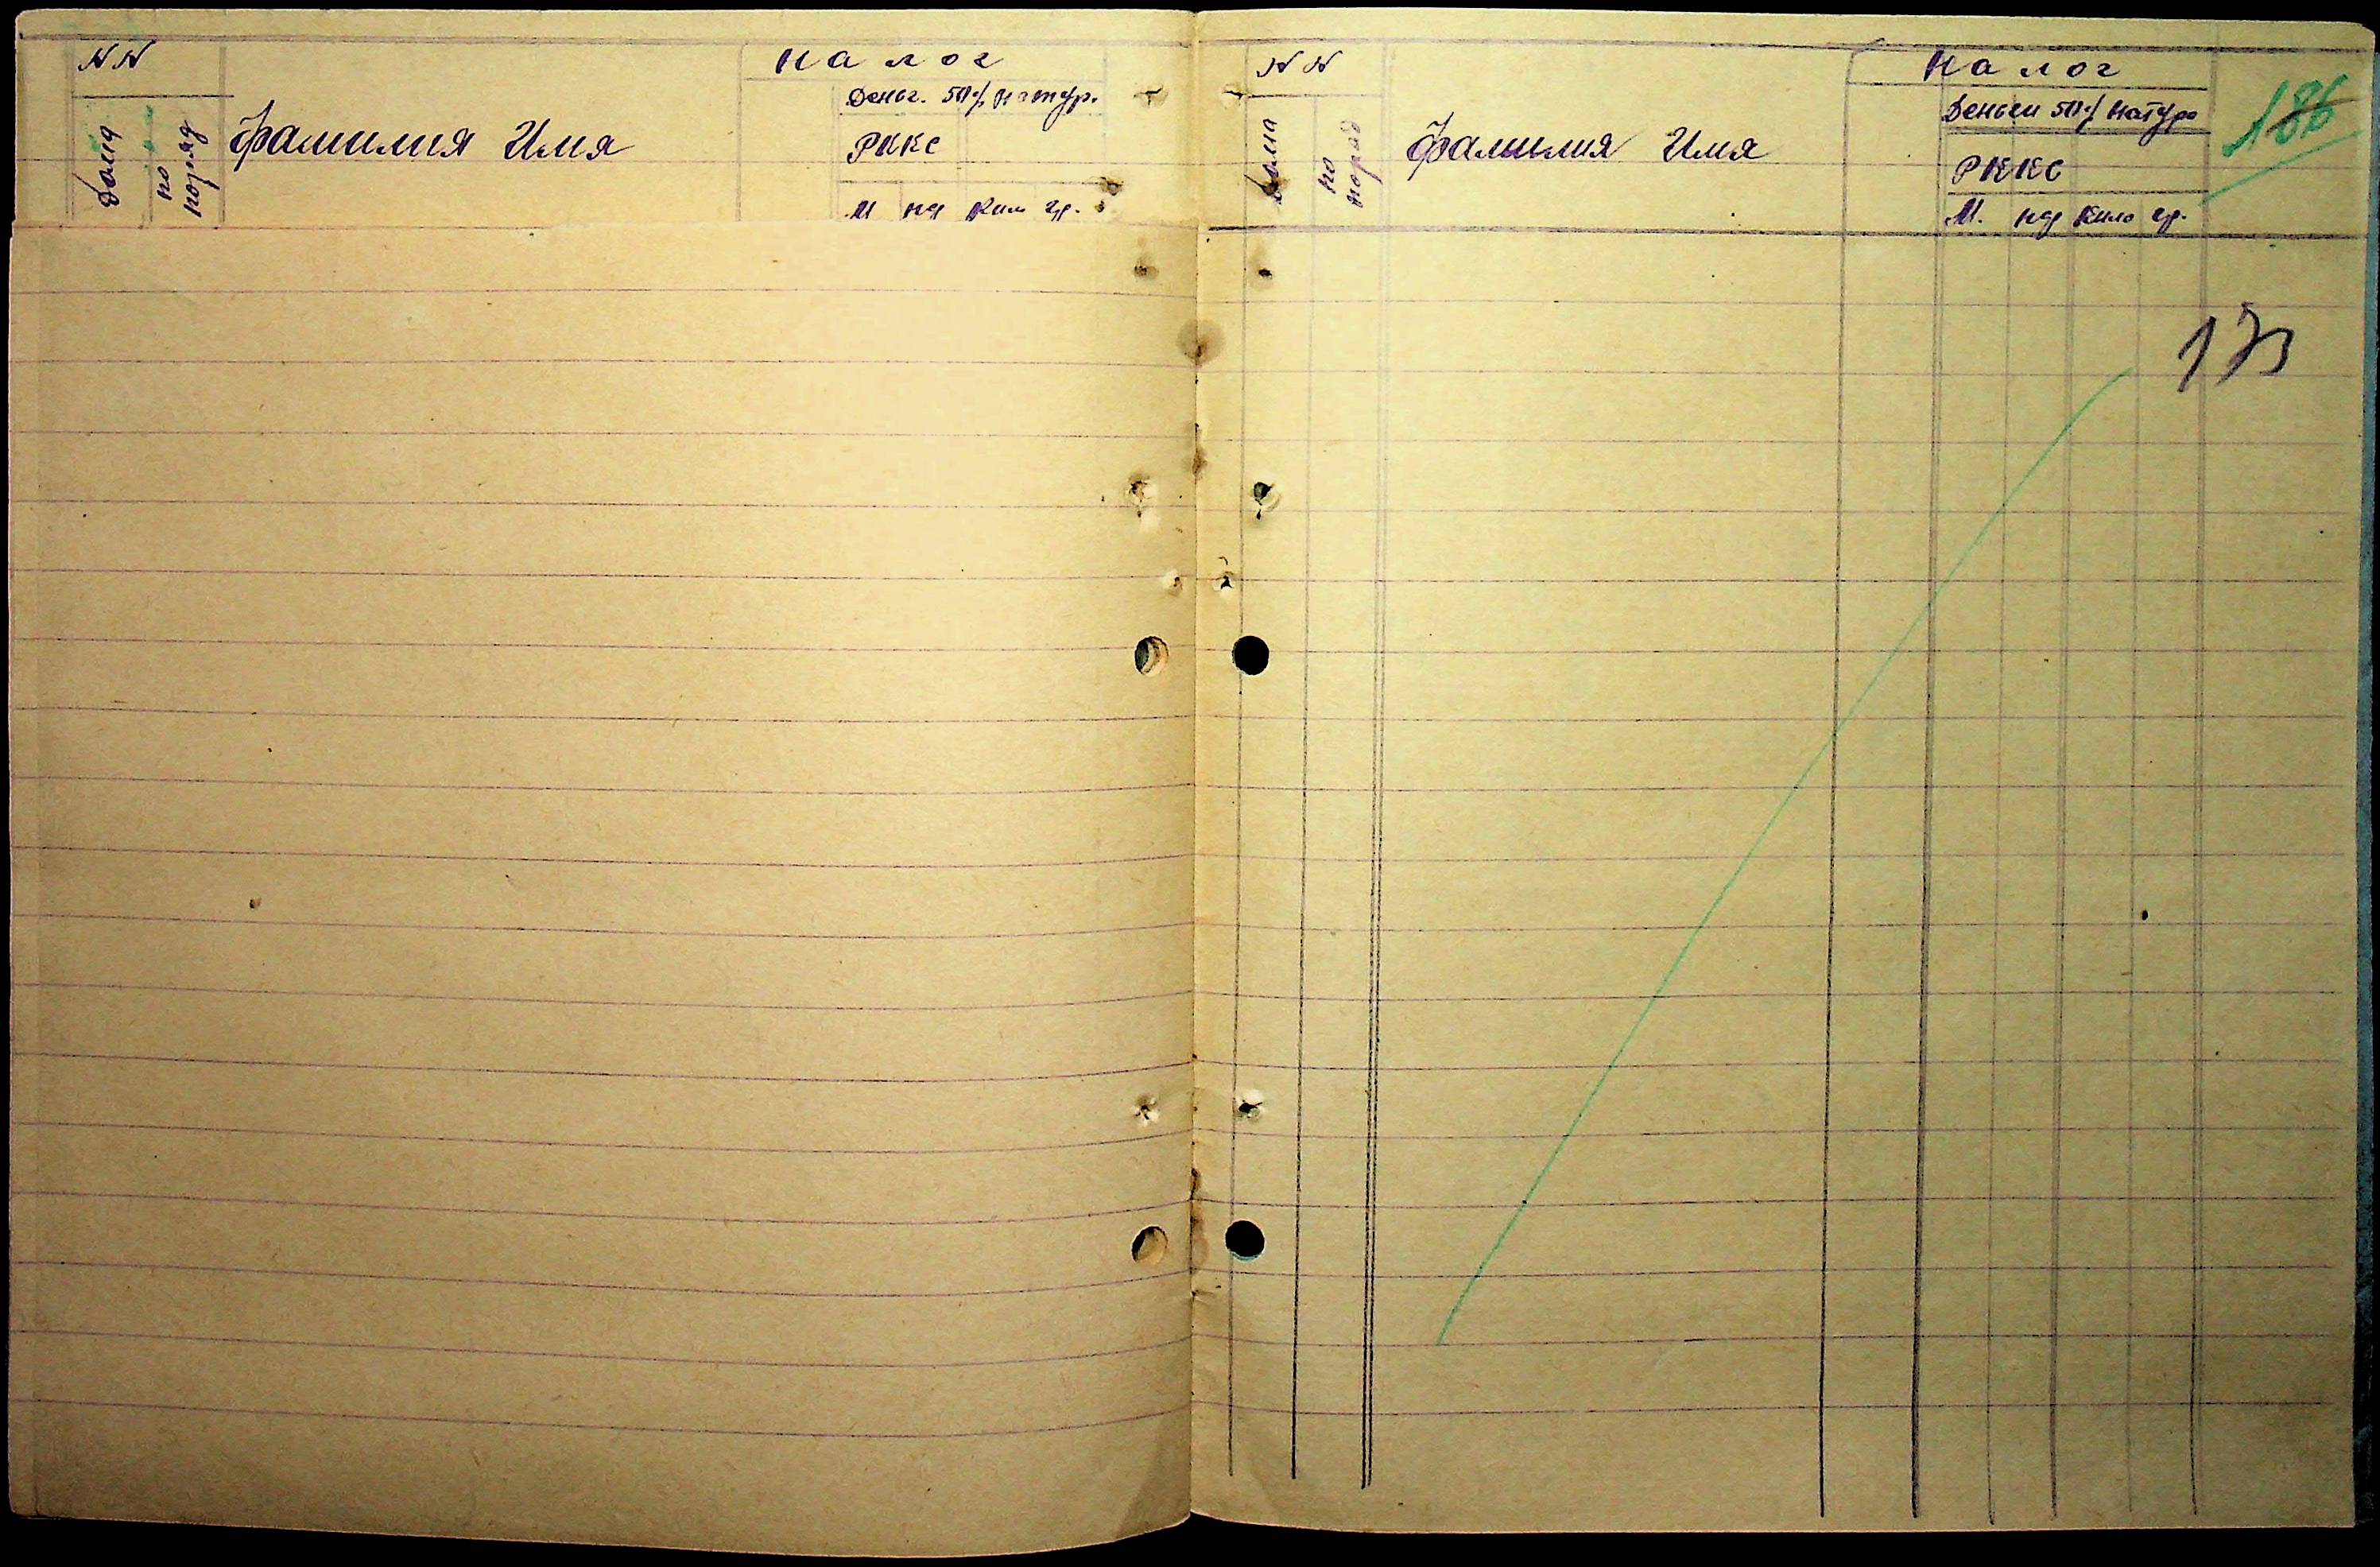 NN
Дома
по поряд
Фамилия Имя
Налог
Деньг. 50% натур.
РККС
М пд Кил гр.
NN
Дома
по поряд
Фамилия Имя
Налог
Деньги 50% натура
РККС
М. пд Кило гр.
186
173